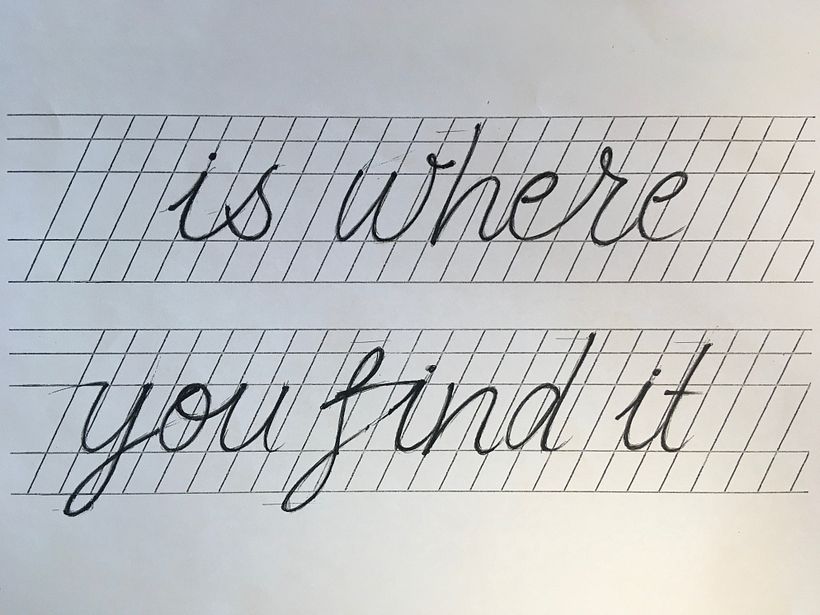 is where
you find it